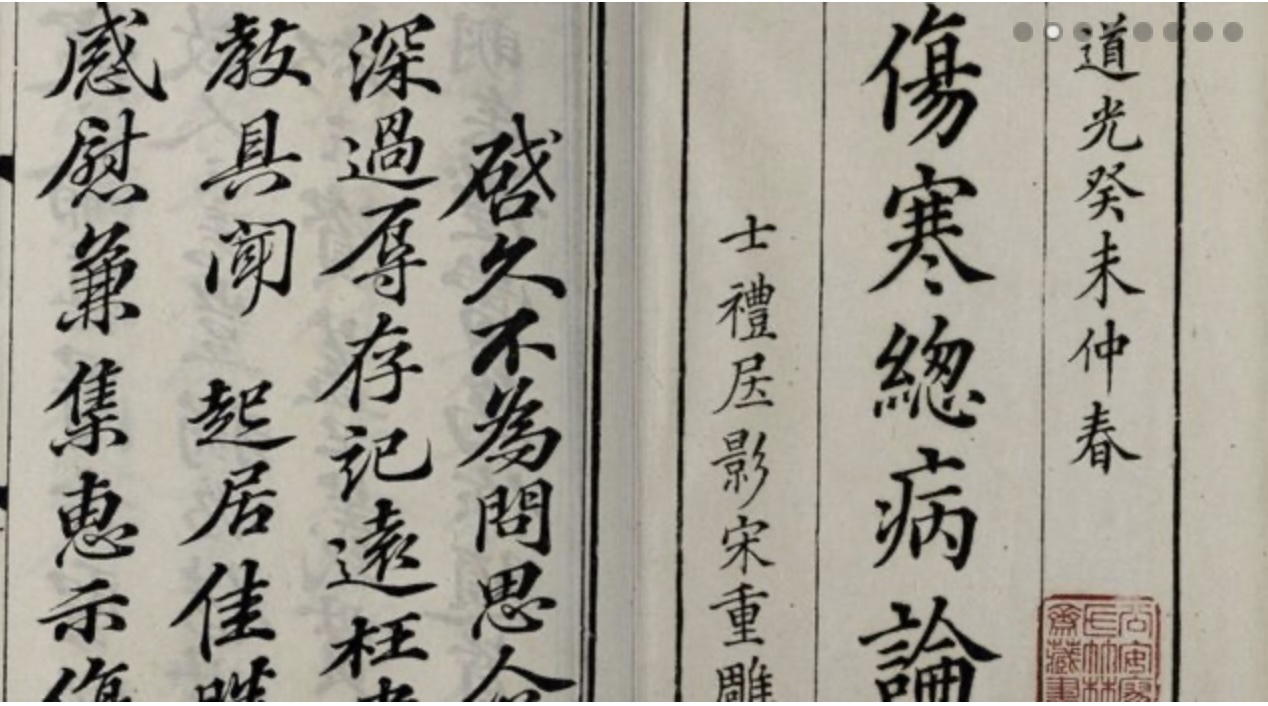 道光癸未仲春
傷寒總病論
士禮居影宋重雕
啓久不為問思
深過辱存記遠枉
教具聞 起居佳勝
感慰兼集惠示傷